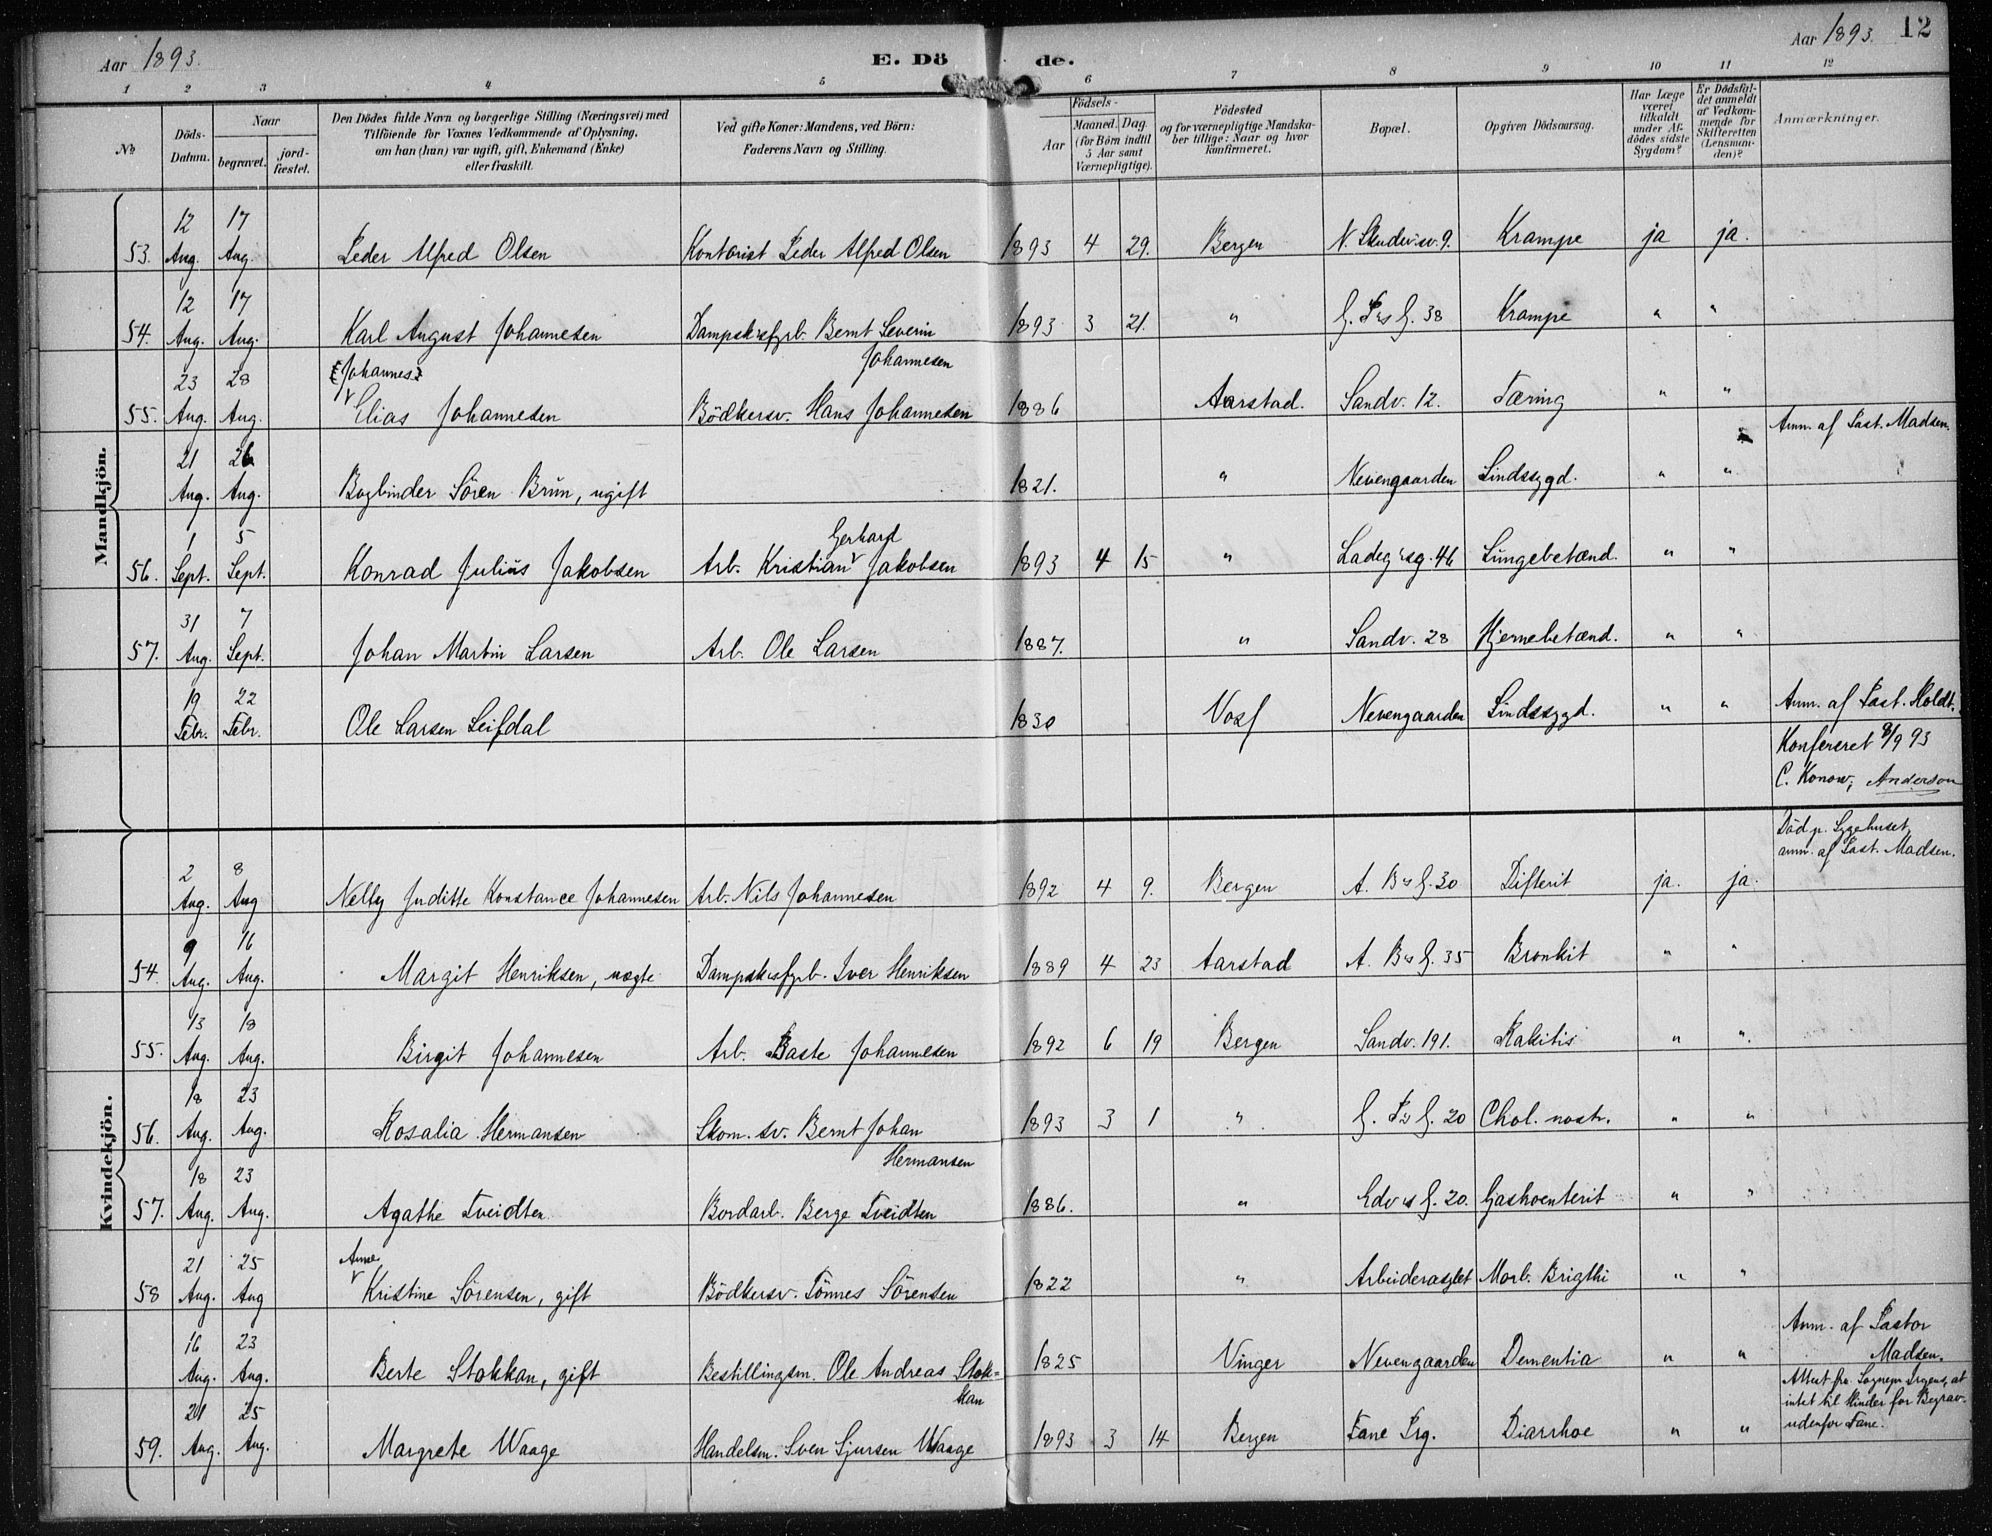 Aar 1893.
E. Döde.
Aar 1893. 12
1 2 3 4 5 6 7 8 9 10 11 12
No.
Döds-Datum.
Naar
begravet.
jord-fæstet.
Den Dödes fulde Navn og borgerlige Stilling (Næringsvei) med
Tilföiende for Voxnes Vedkommende af Oplysning,
om han (hun) var ugift, gift, Enkemand (Enke)
eller fraskilt.
Ved gifte Koner: Mandens, ved Börn:
Faderens Navn og Stilling.
Födsels-
Aar
Maaned. Dag.
(for Börn indtil
5 Aar samt
Værnepligtige).
Födested
og for værnepligtige Mandska-
ber tillige: Naar og hvor
konfirmeret.
Bopæl.
Opgiven Dödsaarsag.
Har Læge
været
tilkaldt
under Af-
dödes sidste
Sygdom?
Er Dödsfal-
det anmeldt
af Vedkom-
mende for
Skifteretten
(Lensman-
den)?
Anmærkninger.
Mandkjön.
53. 12 Aug. 17 Aug. Peder Alfred Olsen Kontorist Peder Alfred Olsen 1893 4 29. Bergen N. Skudev.sv. 9. Krampe ja ja.
54. 12 Aug. 17 Aug. Karl August Johannesen Dampsk.sfyrb. Bernt Severin Johannesen 1893 3 21. " G. P.s G. 38 Krampe " "
55. 23 Aug. 28 Aug. [Johannes] Elias Johannesen Bödkersv. Hans Johannesen 1886 Aarstad. Sandv. 12. Tæring " "
21 Aug. 26 Aug. Bogbinder Sören Brun, ugift 1821. " Nevengaarden Sindssygd. " " Anm. af Past. Madsen.
56. 1 Sept. 5 Sept. Konrad Julius Jakobsen Arb. Kristian Gerhard Jakobsen 1893 4 15 " Ladeg.sg. 46 Lungebetænd. " "
57. 31 Aug. 7 Sept. Johan Martin Larsen Arb. Ole Larsen 1887. " Sandv. 28 Hjernebetænd. " "
19 Febr. 22 Febr. Ole Larsen Leifdal 1830 Voss Nevengaarden Sindssygd. " " Anm. af Past. Holdt.
Konfereret 8/9 93
C. Konow, Anderson
Kvindekjön.
2 Aug. 8 Aug Nelly Juditte Konstance Johannesen Arb. Nils Johannesen 1892 4 9. Bergen A. B.s G. 30 Difterit ja. ja. Död p. Sygehuset, anm. af Past. Madsen.
54. 9 Aug. 16 Aug. Margit Henriksen, uægte Dampsk.sfyrb. Iver Henriksen 1889 4 23 Aarstad A. B.s G. 35 Bronkit " "
55. 13 Aug. 18 Aug. Birgit Johannesen Arb. Baste Johannesen 1892 6 19 Bergen Sandv. 191. Rakitis " "
56. 18 Aug. 23 Aug. Rosalia Hermansen Skom. sv. Bernt Johan Hermansen 1893 3 1 " G. P.s G. 20 Chol. nostr. " "
57. 18 Aug. 23 Aug. Agathe Tveidten Bordarb. Berge Tveidten 1886. " Edv.s G. 20. Gastroenterit " "
58 21 Aug. 25 Aug Anne Kristine Sörensen, gift Bödkersv. Tönnes Sörensen 1822 " Arbeiderasylet Morb. Brigthi " "
16 Aug. 23 Aug. Berte Stokkan, gift Bestillingsm. Ole Andreas Stok=kan 1825 Vinger Nevengaarden Dementia " " Anm. af Pastor Madsen.
59. 21 Aug. 25 Aug. Margrete Waage Handelsm. Sven Sjursen Waage 1893 3 14 Bergen Fane Prg. Diarrhoe " " Attest fra Sognepr. Irgens, at
intet til Hinder for Begrav.
udenfor Fane.